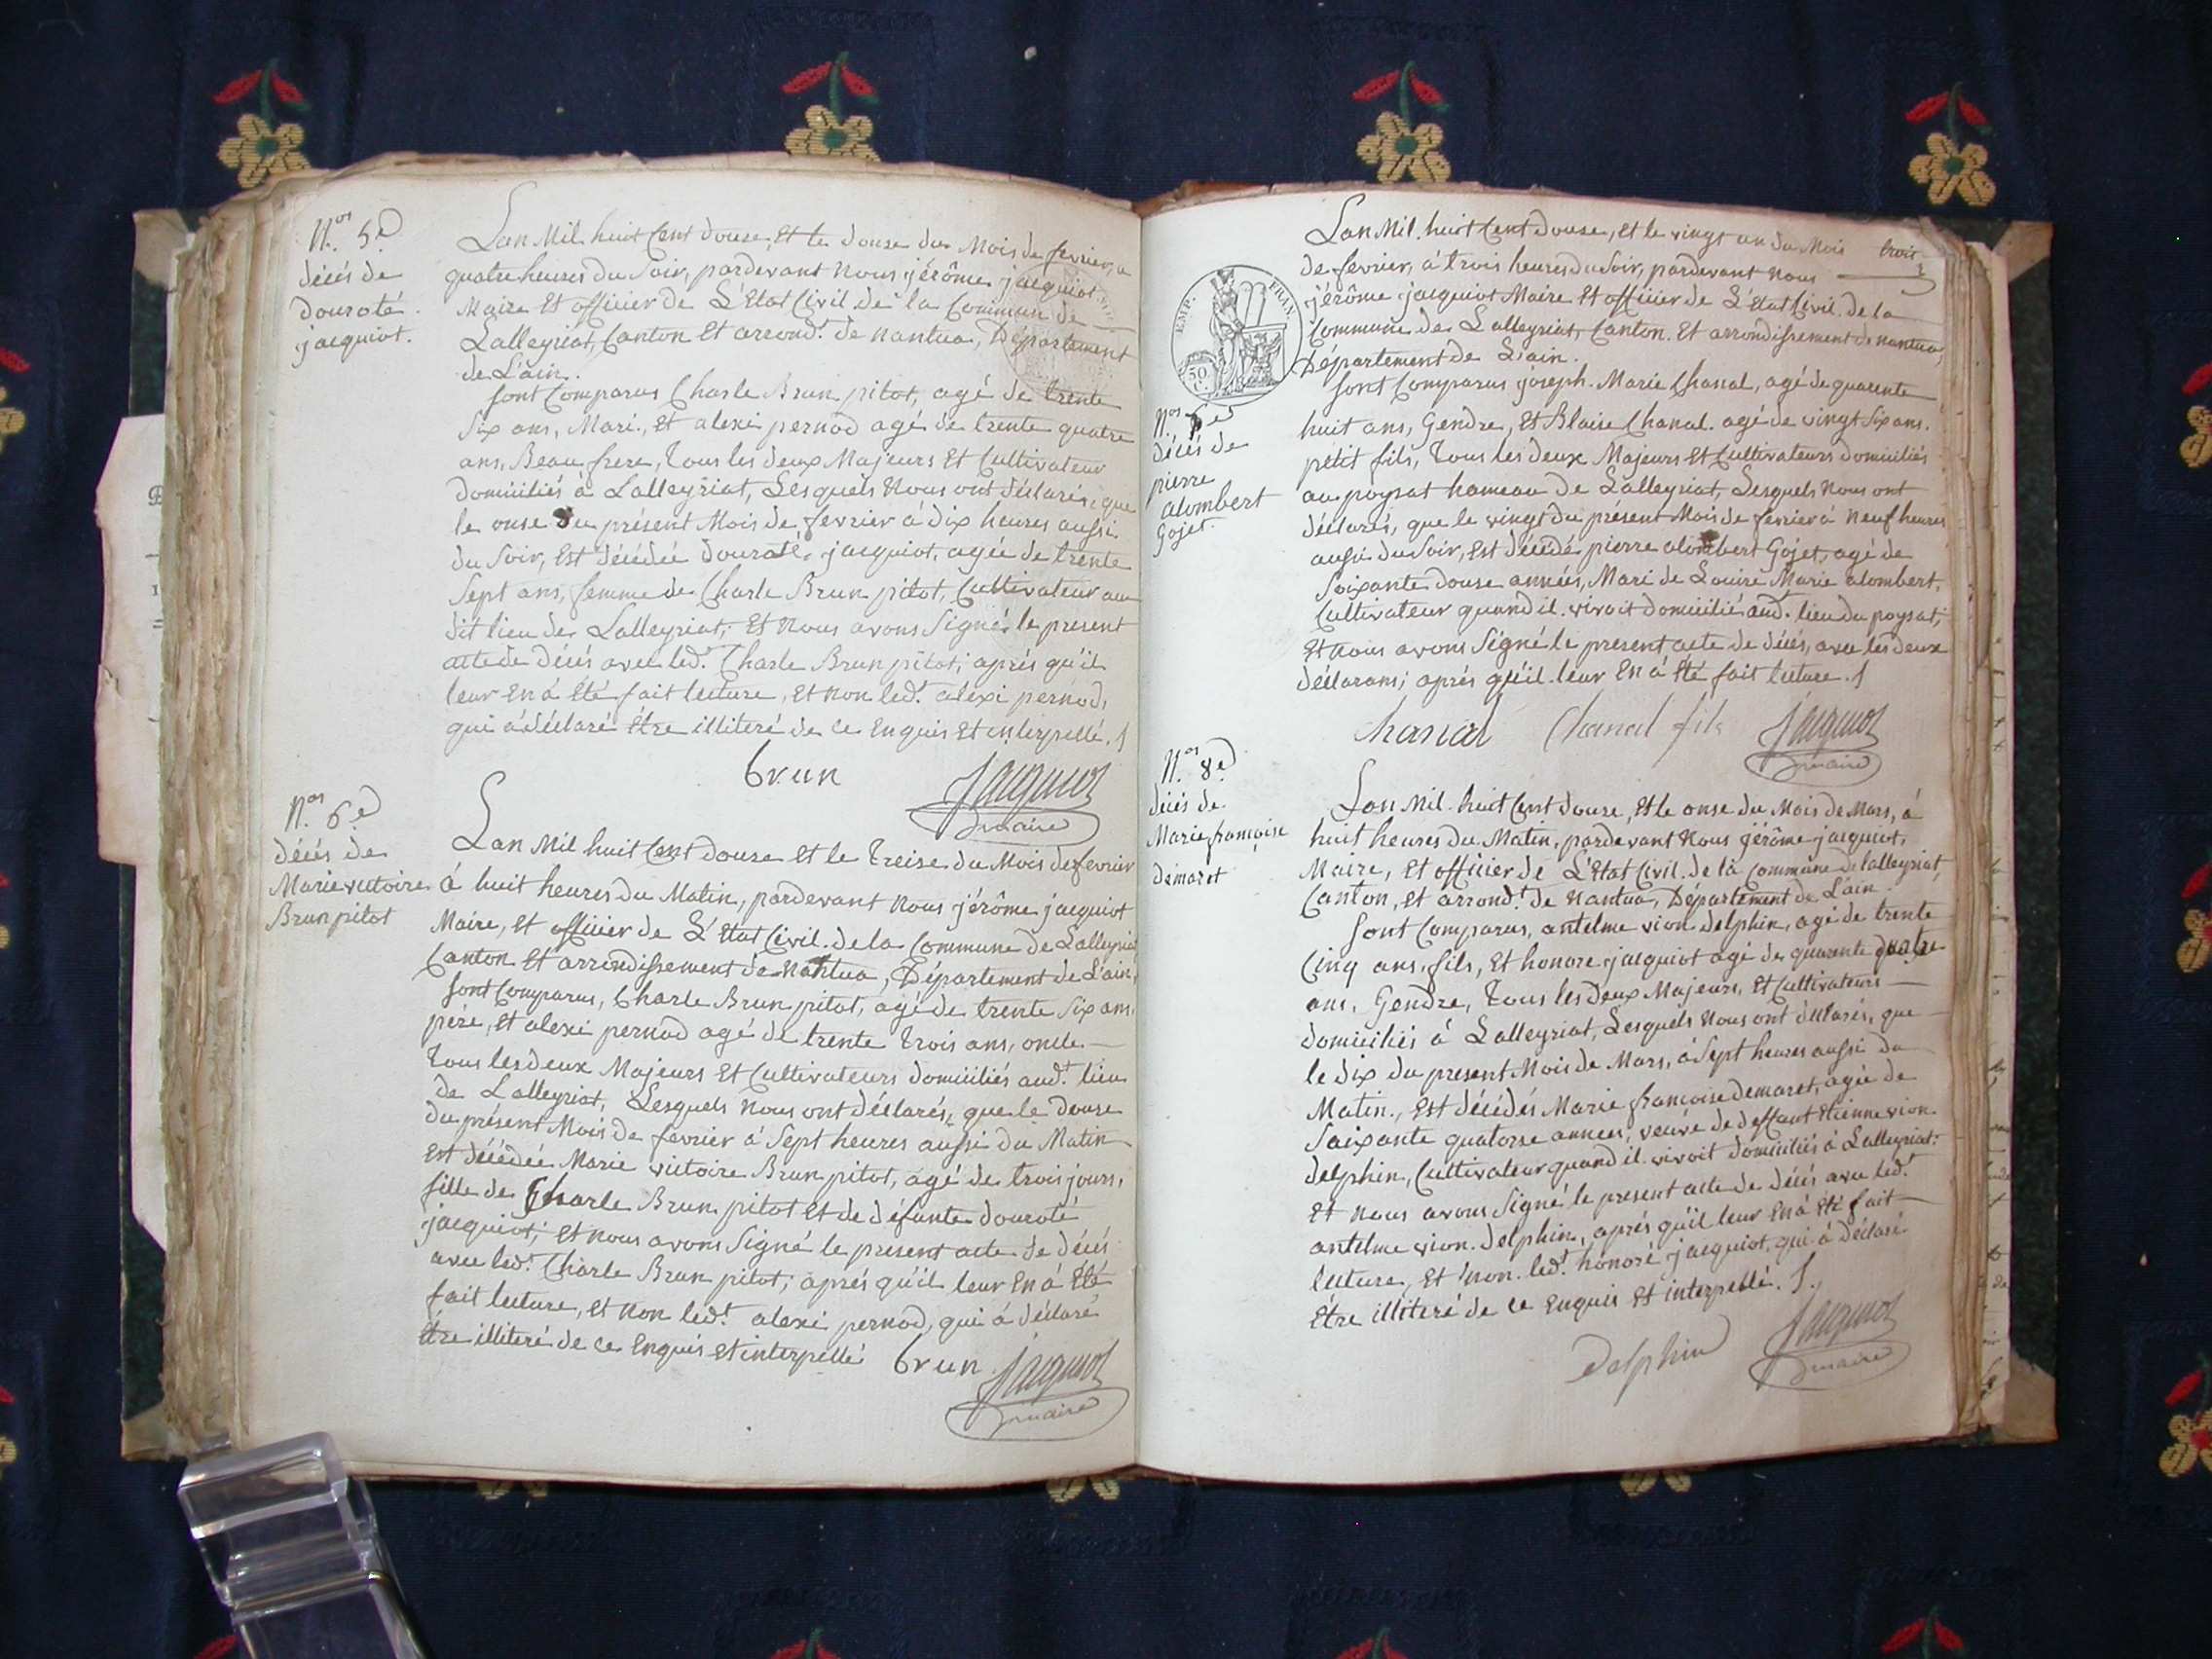 N.os 5.e
décés de
douroté
jacquiot.
Lan Mil huit Cent douse, Et le douse du Mois de fevrier, a
quatre heures du Soir, pardevant Nous jérôme jacquiot
Maire Et officier de L'Etat Civil de la Commune de
Lalleyriat, Canton Et arrond.t de nantua, Département
de L'ain.
sont Comparus Charle Brun pitot, agé de trente
Six ans, Mari, Et alexi pernod agé de trente quatre
ans, Beau frere, tous les deux Majeurs Et Cultivateur
domiciliés à Lalleyriat, Lesquels Nous ont déclarés, que
le onse du présent Mois de fevrier à dix heures aussi
du Soir, Est décédée douroté jacquiot, agée de trente
Sept ans, femme de Charle Brun pitot, Cultivateur au
dit lieu de Lalleyriat; Et Nous avons Signé le present
acte de décés avec led.t Charle Brun pitot; aprés qu'il
leur En à Eté fait lecture, Et non led.t aléxi pernod,
qui à déclaré Etre illiteré de ce Enquis Et interpellé.
brun
Jacquiot
maire
N.os 6.e
décés de
Marie victoire
Brun pitot
Lan Mil huit Cent douse Et le treise du Mois de fevrier
à huit heures du Matin, pardevant Nous jérôme jacquiot
Maire, Et officier de L'Etat Civil de la Commune de Lalleyriat
Canton Et arrondissement de Nantua, Département de L'ain,
sont Comparus, Charle Brun pitot, agé de trente Six ans,
pére, Et alexi pernod agé de trente trois ans, oncle
tous les deux Majeurs Et Cultivateurs domiciliés aud.t lieu
de Lalleyriat, Lesquels Nous ont déclarés, que le douse
du présent Mois de fevrier à Sept heures aussi du Matin
Est décédée Marie victoire Brun pitot, agé de trois jours,
fille de Charle Brun pitot Et de défunte douroté
jacquiot; Et nous avons Signé le present acte de décés
avec led.t Charle Brun pitot; aprés qu'il leur En à Eté
fait lecture, Et non led.t alexi pernod, qui à déclaré
Etre illiteré de ce Enquis Et interpellé
brun
Jacquiot
maire
trois
EMP. FRAN.
50 C.
Lan Mil huit Cent douse, Et le vingt un du Mois
de fevrier, à trois heures du Soir, pardevant nous
jérôme jacquiot Maire Et officier de L'Etat Civil de la
Commune de Lalleyriat, Canton Et arrondissement de nantua,
Département de L'ain.
N.os 7.e
décés de
pierre
alombert
Gojet.
sont Comparus joseph Marie Chanal, agé de quarente
huit ans, Gendre, Et Blaise Chanal agé de vingt Six ans.
petit fils, tous les deux Majeurs Et Cultivateurs domiciliés
au poysat hameau de Lalleyriat, Lesquels Nous ont
déclarés, que le vingt du présent Mois de fevrier à Neuf heures
aussi du Soir, Est décédé pierre alombert Gojet, agé de
Soixante douse années, Mari de Louise Marie alombert,
Cultivateur quand il vivoit domicilié aud.t lieu du poysat;
Et nous avons Signé le present acte de décés, avec les deux
déclarans; aprés qu'il leur En à Eté fait lecture.
Chanal Chanal fils Jacquiot
maire
N.os 8.e
décés de
Marie françoise
demaret
Lan Mil huit Cent douse, Et le onse du Mois de Mars, à
huit heures du Matin, pardevant Nous jérôme jacquiot,
Maire, Et officier de L'Etat Civil de la Commune de lalleyriat
Canton, Et arrond.t de Nantua, Département de L'ain.
sont Comparus, antelme vion delphin, agé de trente
Cinq ans, fils, Et honore jacquiot agé de quarente quatre
ans, Gendre, tous les deux Majeurs, Et Cultivateurs
domiciliés à Lalleyriat, Lesquels Nous ont déclarés, que
le dix du present Mois de Mars, à Sept heures aussi du
Matin, Est décédés Marie françoise demaret, agée de
Soixante quatorse annees, veuve de deffunt Etienne vion
delphin, Cultivateur quand il vivoit domiciliés à Lalleyriat:
Et nous avons Signé le present acte de décés avec led.t
antelme vion delphin, aprés qu'il leur En à Eté fait
lecture, Et non led.t honoré jacquiot, qui à déclaré
Etre illiteré de ce Enquis Et interpellé.
Delphin
Jacquiot
maire